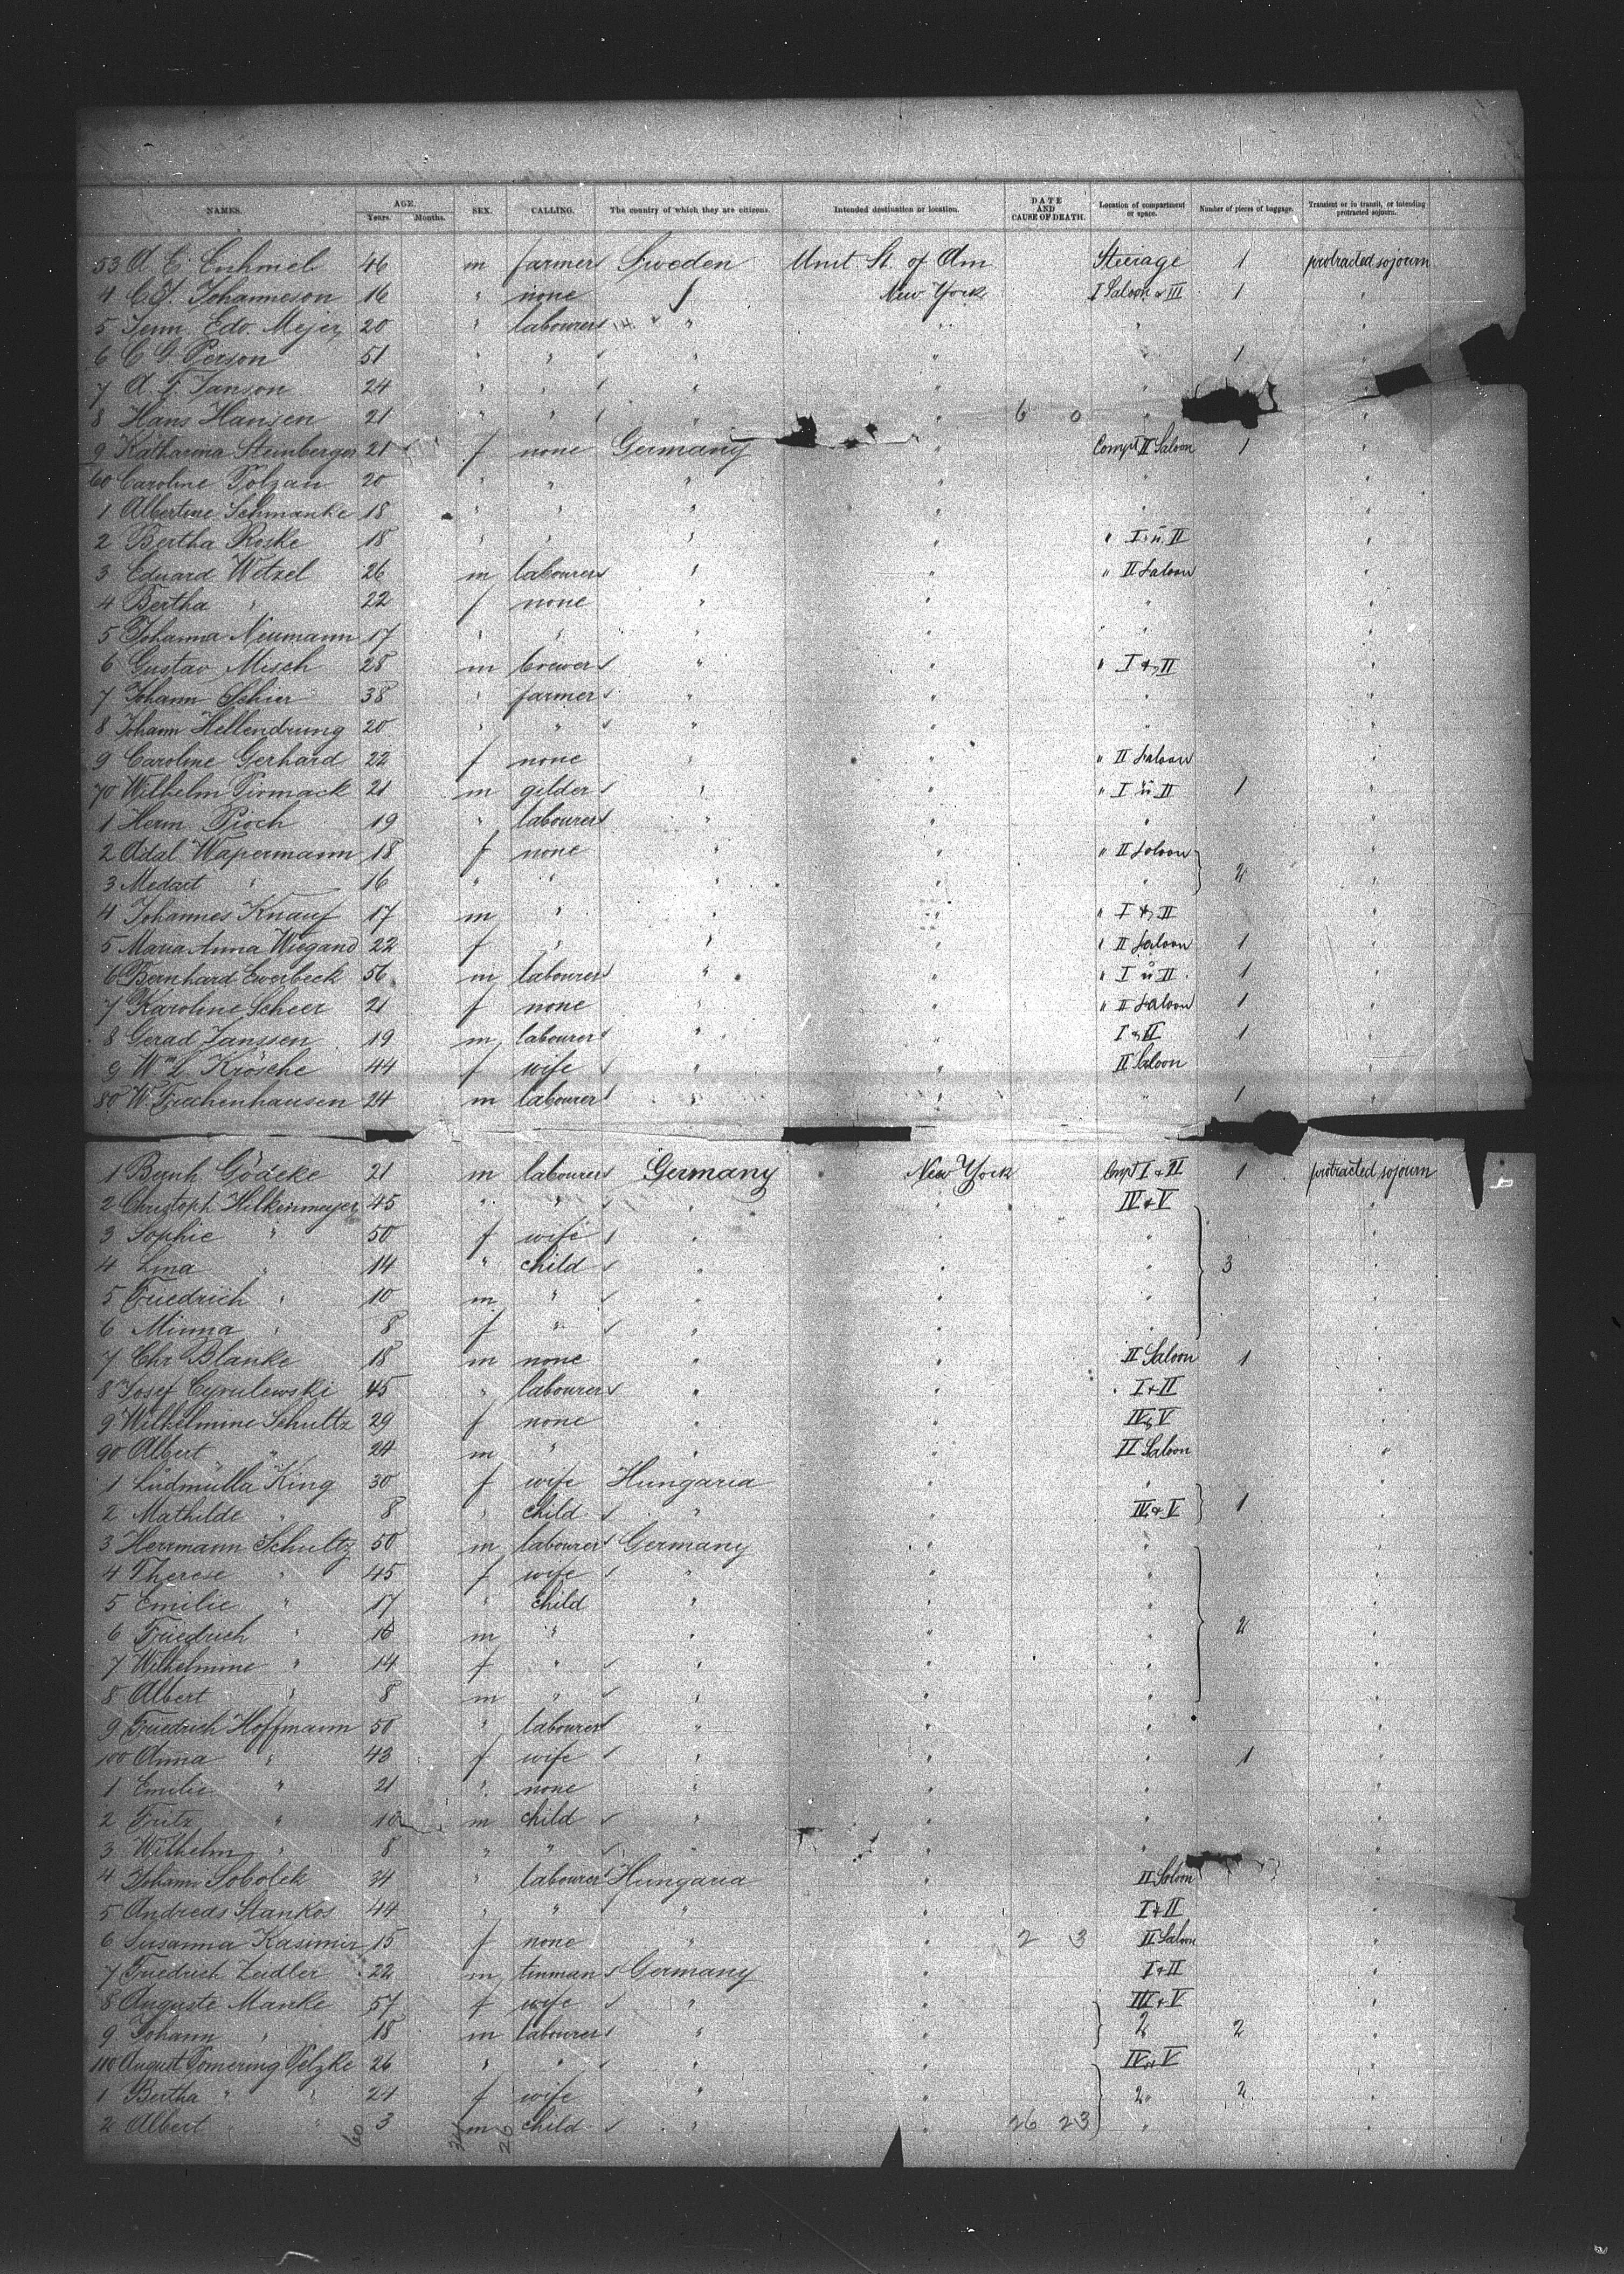 NAMES. AGE. Years. Months. SEX. CALLING. The country of which they are citizens. Intended destination or location. DATE AND CAUSE OF DEATH. Location of compartment or space. Number of pieces of baggage. Transient or in transit, or intending protracted sojourn.
53 A. E. Enhmel 46 m farmer Sweden Unit. St. of Am Steerage 1 protracted sojourn
4 C. F. Johanneson 16 " none New York I Saloon & III 1 "
5 Jenn. Edv. Mejer 20 " labourer " " "
6 C G. Person 51 " " " " " 1 "
7 A. F. Janson 24 " " " " "
8 Hans Hansen 21 " " " " 6 0 " "
9 Katharina Steinberger 21 f none Germany " Compt II Saloon 1 "
60 Caroline Polzan 20 " " " " " "
1 Albertine Schmanke 18 " " " " " "
2 Bertha Roske 18 " " " " " I u. II "
3 Eduard Wetzel 26 m labourer " " " II Saloon "
4 Bertha " 22 f none " " " "
5 Johanna Neumann 17 " " " " " "
6 Gustav Misch 28 m brewer " " " I & II "
7 Johann Schier 38 " farmer " " " "
8 Johann Hellendrung 20 " " " " " "
9 Caroline Gerhard 22 f none " " " II Saloon "
70 Wilhelm Pirmack 21 m gilder " " " I u II 1 "
1 Herm. Proch 19 " labourer " " " "
2 Adal Wapermann 18 f none " " " II Saloon "
3 Medart " 16 " " " " " 2 "
4 Johannes Knauf 17 m " " " " I & II "
5 Maria Anna Wiegand 22 f " " " " II Saloon 1 "
6 Bernhard Ewerbeck 56 m labourer " " " I u II 1 "
7 Karoline Scheer 21 f none " " " II Saloon 1 "
8 Gerad Janssen 19 m labourer " " I & II 1 "
9 Wm L. Krösche 44 f wife " " II Saloon "
80 W. Frechenhausen 24 m labourer " " " 1 "
1 Bernh Gödeke 21 m labourer Germany New York Compt I & II 1 protracted sojourn
2 Christoph Hilkenmeyer 45 " " " " IV & V "
3 Sophie " 50 f wife " " " "
4 Lina " 14 " child " " " 3 "
5 Friedrich " 10 m " " " " "
6 Minna " 8 f " " " " "
7 Chr Blanke 18 m none " " II Saloon 1 "
8 Josef Cyrulewski 45 " labourer " " I & II "
9 Wilhelmine Schultz 29 f none " " IV & V "
90 Albert " 24 m " " " II Saloon "
1 Ludmulla King 30 f wife Hungaria " " "
2 Mathilde " 8 " child " " IV & V 1 "
3 Herrmann Schultz 50 m labourer Germany " " "
4 Therese " 45 f wife " " " "
5 Emilie " 17 " child " " " "
6 Friedrich " 16 m " " " " 2 "
7 Wilhelmine " 14 f " " " " "
8 Albert " 8 m " " " " "
9 Friedrich Hoffmann 50 " labourer " " " "
100 Anna " 43 f wife " " " 1 "
1 Emilie " 21 " none " " " "
2 Fritz " 10 m child " " " "
3 Wilhelm " 8 " " " " " "
4 Johann Sobolek 34 " labourer Hungaria " II Saloon "
5 Andreas Stankos 44 " " " " I & II "
6 Susanna Kasimir 15 f none " " 2 3 II Saloon "
7 Friedrich Zeidler 22 m tinman Germany " I & II "
8 Auguste Manke 57 f wife " " III & V "
9 Johann " 18 m labourer " " " 2 "
110 August Pomering Pelzke 26 " " " " IV & V "
1 Bertha " " 21 f wife " " " 2 "
2 Albert " " 3 m child " " 26 23 " "
60 26